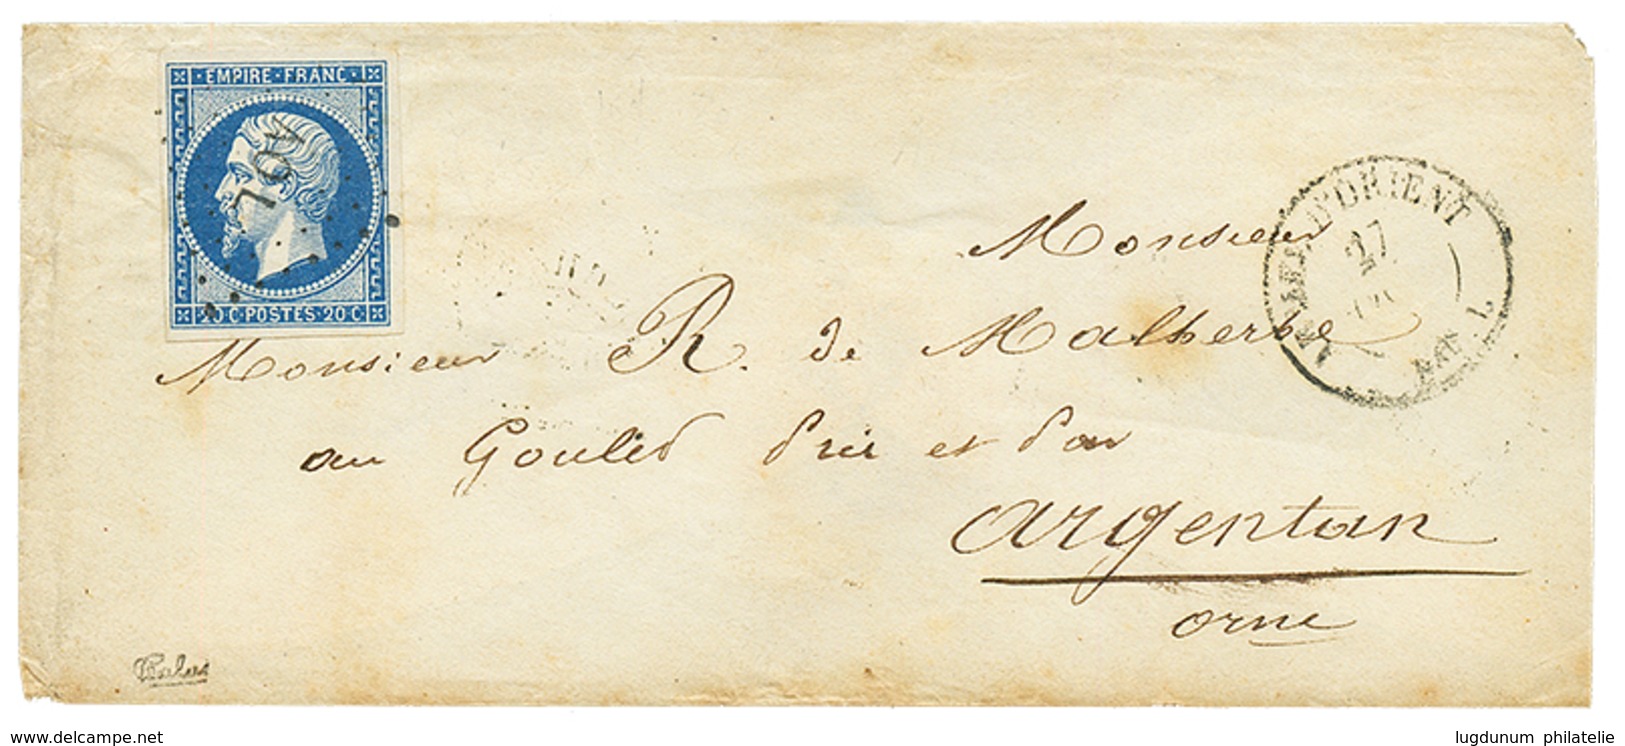 EMPIRE · FRANC ·
20 C · POSTES · 20 C ·
D'ORIENT
27
Monsieur
Monsieur R. de Malherbe
au Goulet Prés et Par
Argentan
orne
delcampe.net
lugdunum philatelie